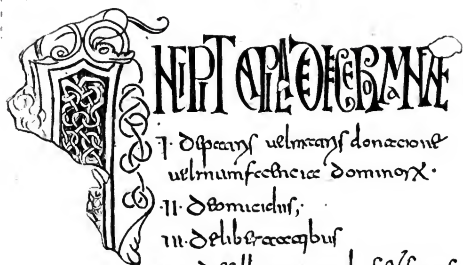 INCIPIT CAPI DE LEGE ROMANAE
I· depatris uelmatris donatione
uelmunifecencia dominor·
·II· deomicidiis;·
·III· deliberatatibus